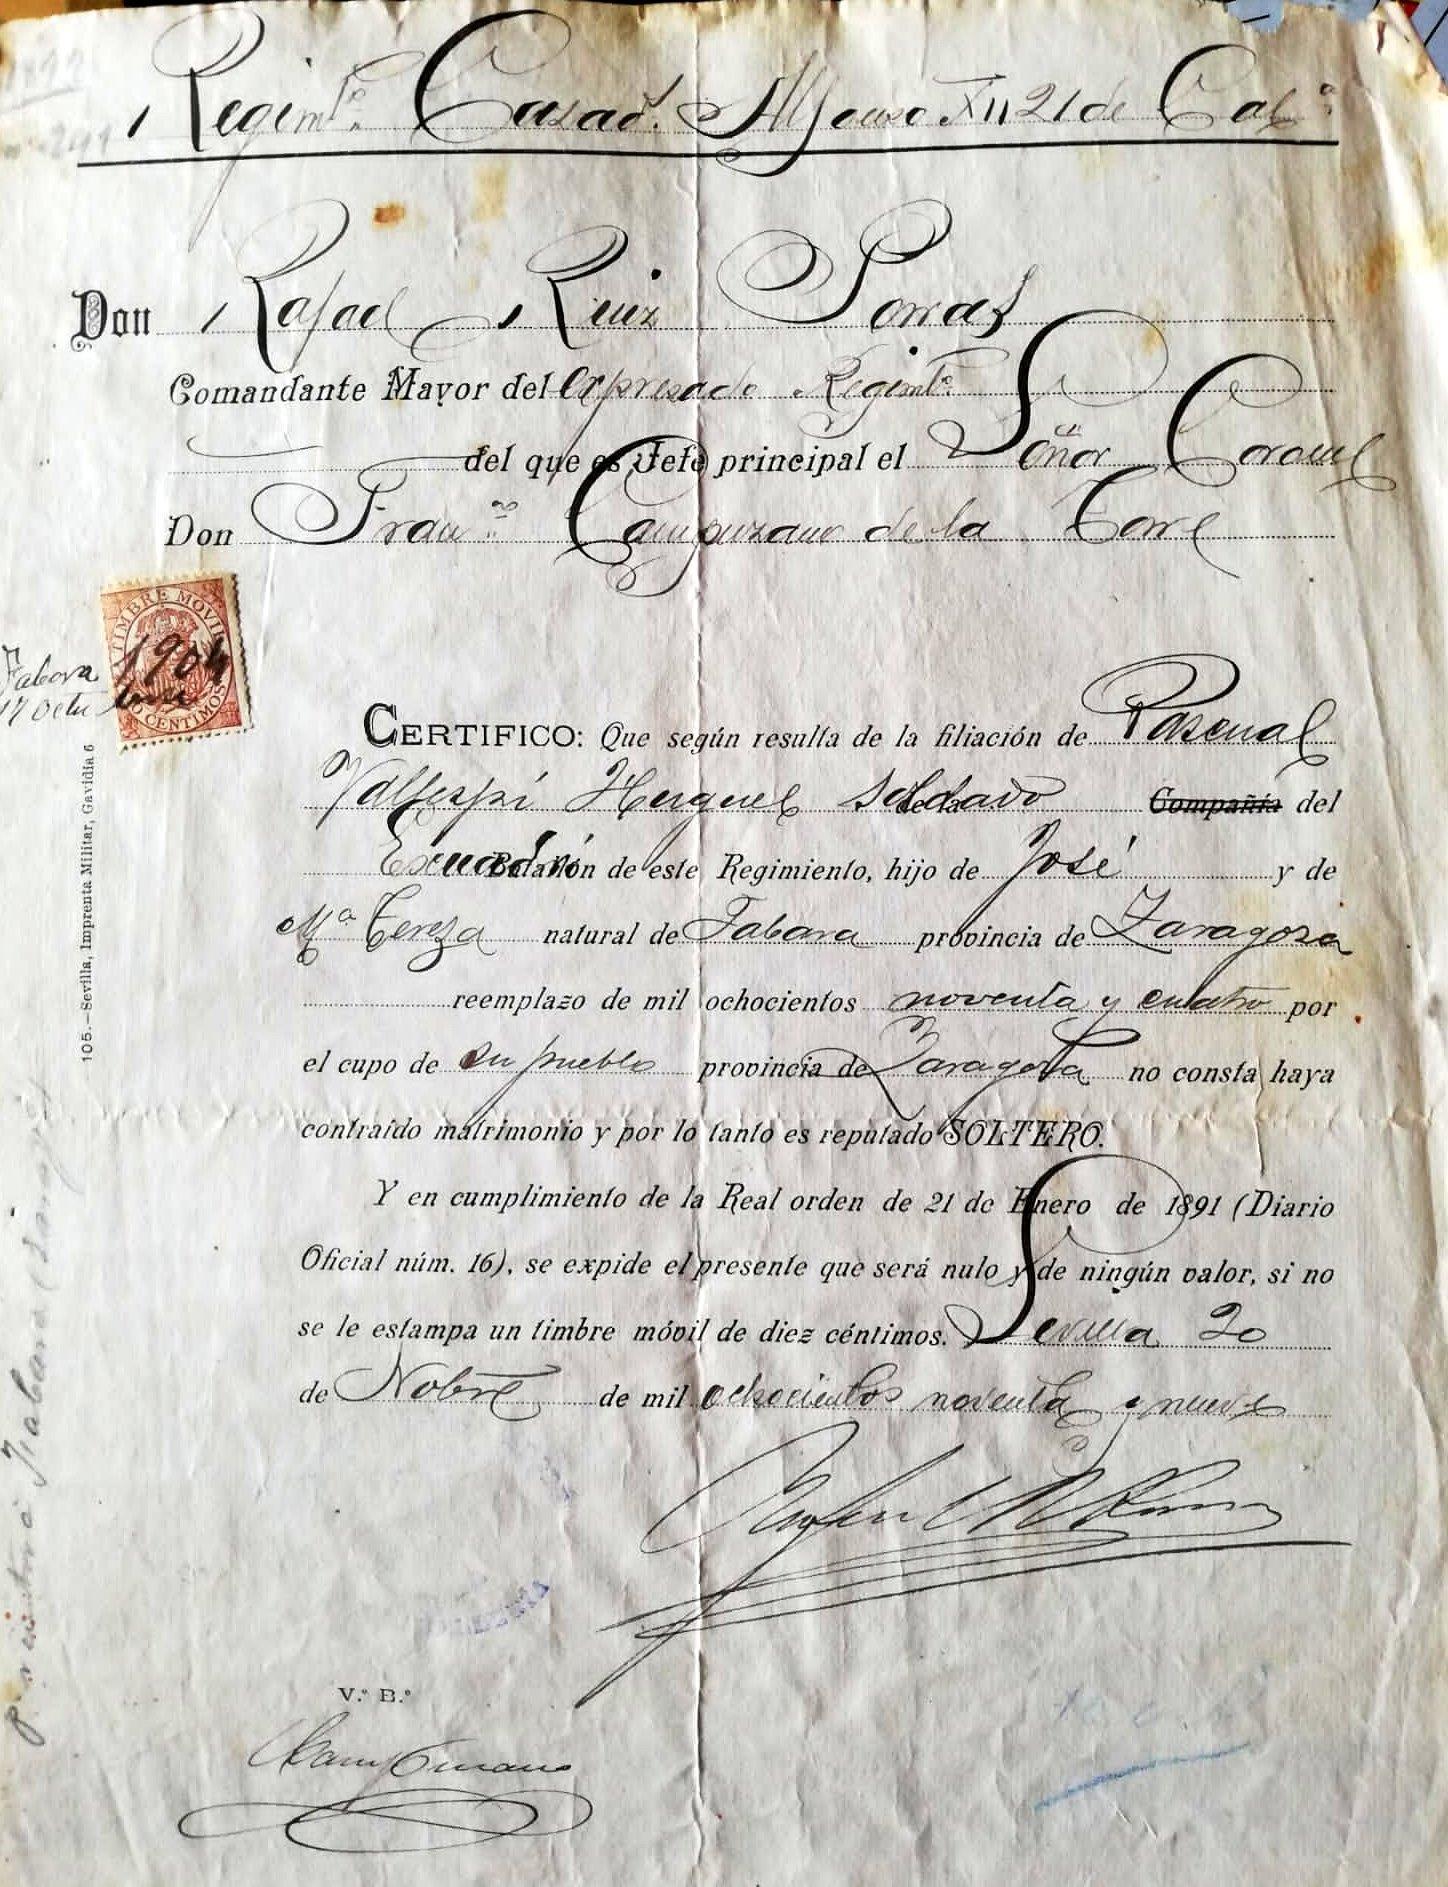 Regimto. Cazads. Alfonso XII 21 de Caba.
Don Rafael Ruiz Porras
Comandante Mayor del expresado Regimto.
del que es Jefe principal el Señor Coronel
Don Franco. Campuzano de la Torre
TIMBRE MOVIL
1904
10 CENTIMOS
Fabara
17 Octu
CERTIFICO: Que según resulta de la filiación de Pascual
Vallespí Huguel Soldado de la Compañía del
Escuadrón Batallón de este Regimiento, hijo de José y de
Ma Tereza natural de Fabara provincia de Zaragoza
reemplazo de mil ochocientos noventa y cuatro por
el cupo de su pueblo provincia de Zaragoza no consta haya
contraído matrimonio y por lo tanto es reputado SOLTERO.
Y en cumplimiento de la Real orden de 21 de Enero de 1891 (Diario
Oficial núm. 16), se expide el presente que será nulo y de ningún valor, si no
se le estampa un timbre móvil de diez céntimos. Sevilla 20
de Nobre de mil ochocientos noventa y nueve
V.º B.º
Campuzano
105.—Sevilla, Imprenta Militar, Gavidia 6